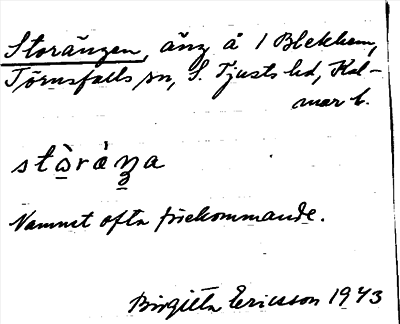 Storängen, äng å 1 Blekhem,
Törnsfalls sn, S. Tjusts hd, Kal-
mar l.
Namnet ofta förekommande.
Birgitta Ericsson 1943